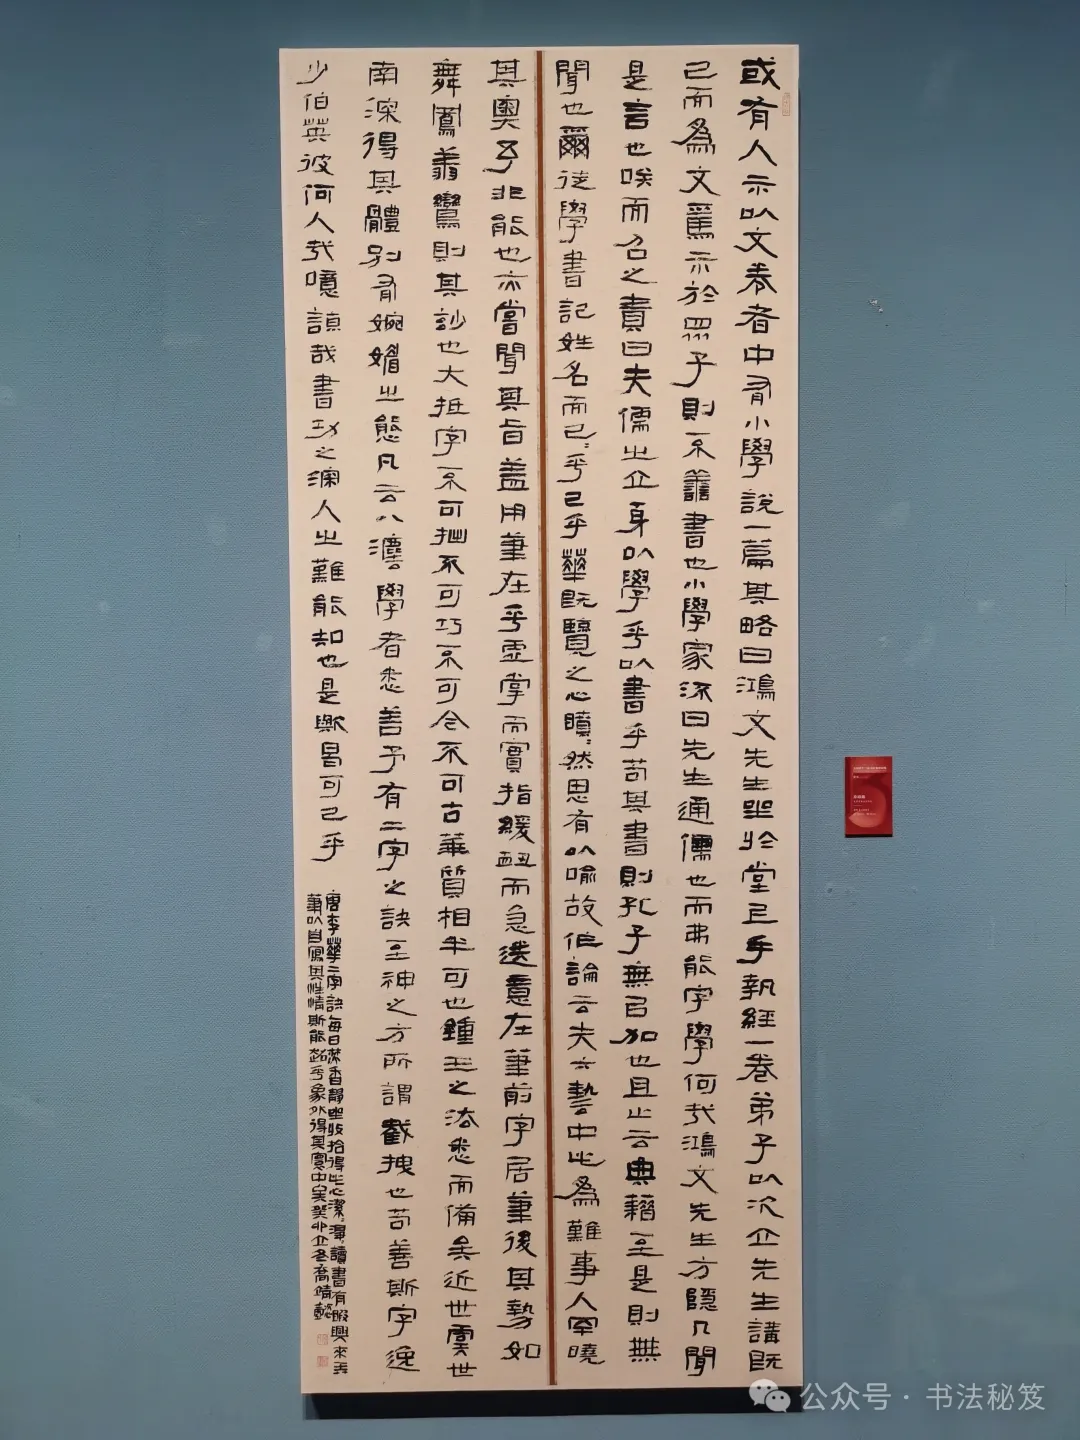 或有人示以文卷者中有小學說一篇其略曰鴻文先生坐於堂上手執經一卷弟子以次立先生講既
已而為文篤示於眾子則不善書也小學家流曰先生通儒也而弗能字學何哉鴻文先生方隱几聞
是言也唉而召之責曰夫儒之立身以學乎以書乎苟其書則孔子無以加也且止云典籍至是則無
聞也爾徒學書記姓名而已〻乎已乎華既覽之心瞶〻然思有以喻故作論云夫六藝中此為難事人罕曉
其奧予非能也亦嘗聞其旨蓋用筆在乎虛掌而實指緩衄而急送意在筆前字居筆後其勢如
舞鳳翥鸞則其妙也大抵字不可拙不可巧不可今不可古華質相半可也鍾王之法悉而備矣近世虞世
南深得其體別有婉媚之態凡云八法學者悉善予有二字之訣至神之方所謂截拽也苟善斯字逸
少伯英彼何人哉噫誠哉書功之深人之難能知也是歟曷可已乎
唐李華二字訣每日焚香靜坐收拾得此心潔〻淨〻讀書有暇興來弄
筆以自寫其性情斯能超乎象外得其寰中矣癸卯立冬喬靖懿
公众号·书法秘笈